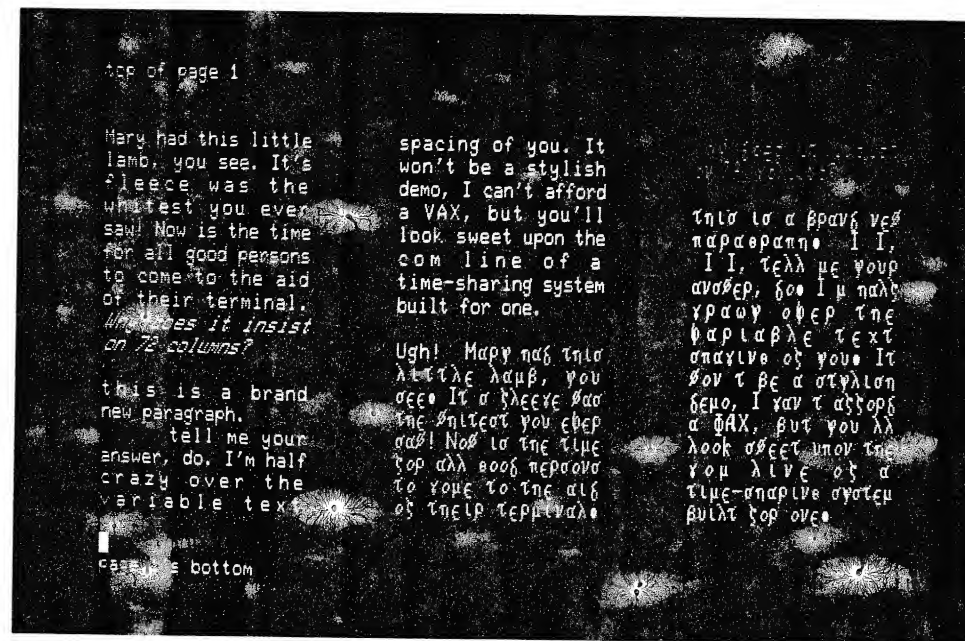 top of page 1
Mary had this little
lamb, you see. It's
fleece was the
whitest you ever
saw! Now is the time
for all good persons
to come to the aid
of their terminal.
Why does it insist
on 72 columns?
this is a brand
new paragraph.
tell me your
answer, do. I'm half
crazy over the
variable text
spacing of you. It
won't be a stylish
demo, I can't afford
a VAX, but you'll
look sweet upon the
com line of a
time-sharing system
built for one.
Ugh! Μαρψ ηαδ τηισ
λιττλε λαμβ, ψου
σεε• Ιτ σ ζλεεγε Øασ
τηε Øηιτεστ ψου εφερ
σαØ! ΝοØ ισ τηε τιμε
ζορ αλλ θοοδ περσονσ
το γομε το τηε αιδ
οζ τηειρ τερμιναλ•
τηισ ισ α βρανδ νεØ
παραθραπη• Ι Ι,
Ι Ι, τελλ με ψουρ
ανσØερ, δο• Ι μ ηαλζ
γραωψ οφερ τηε
φαριαβλε τεχτ
σπαγινθ οζ ψου• Ιτ
Øον τ βε α στψλιση
δεμο, Ι γαν τ αζζορδ
α ΦΑΧ, βυτ ψου λλ
λοοκ σØεετ υπον τηε
γομ λινε οζ α
τιμε-σηαρινθ σψστεμ
βυιλτ ζορ ονε•
bottom